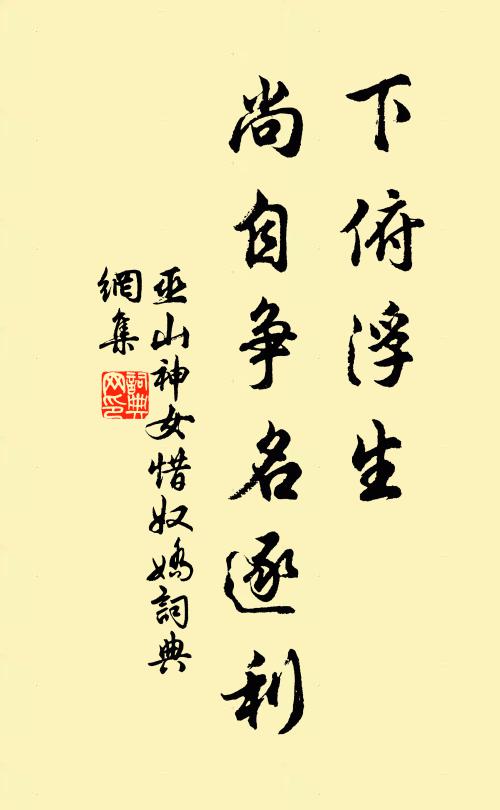 下俯浮生
尚自争名逐利
巫山神女惜奴嬌詞典
網集
詞典
网印